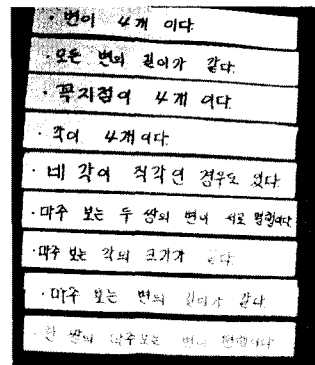 · 변이 4개 이다.
· 모든 변의 길이가 같다.
· 꼭지점이 4개 이다.
· 각이 4개이다.
· 네 각이 직각인 경우도 있다.
· 마주 보는 두 쌍의 변이 서로 평행이다.
· 마주 보는 각의 크기가 같다.
· 마주 보는 변의 길이가 같다.
· 한 쌍의 마주보는 변이 평행이다.